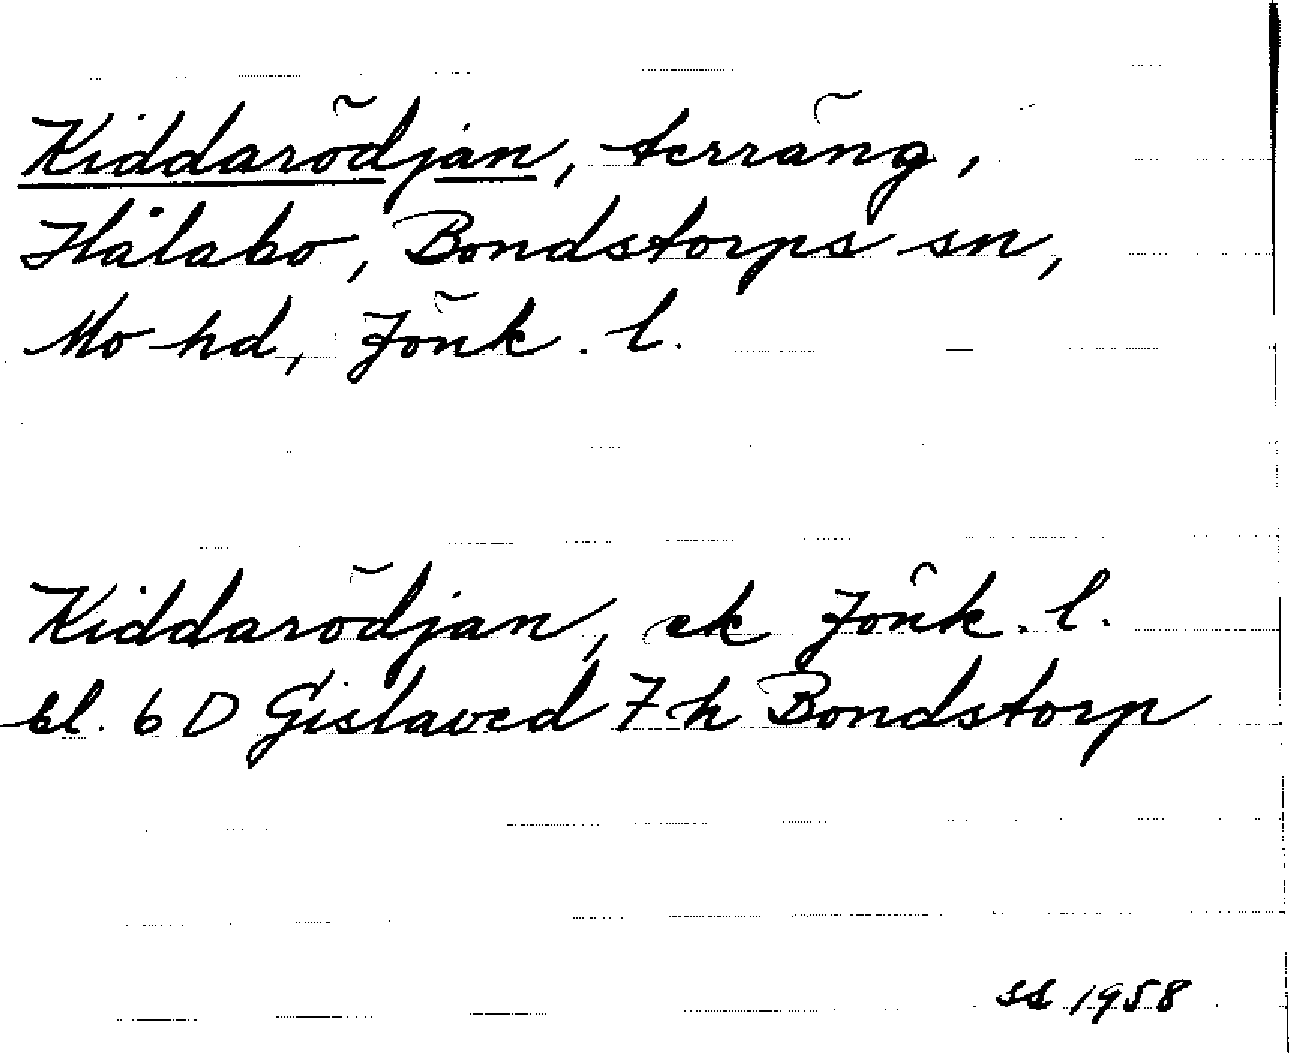 Kiddarödjan, terräng,
Hålabo, Bondstorps sn,
Mo hd, Jönk. l.
Kiddarödjan, ek Jönk. l.
bl. 6 D Gislaved 7 h Bondstorp
SS 1958